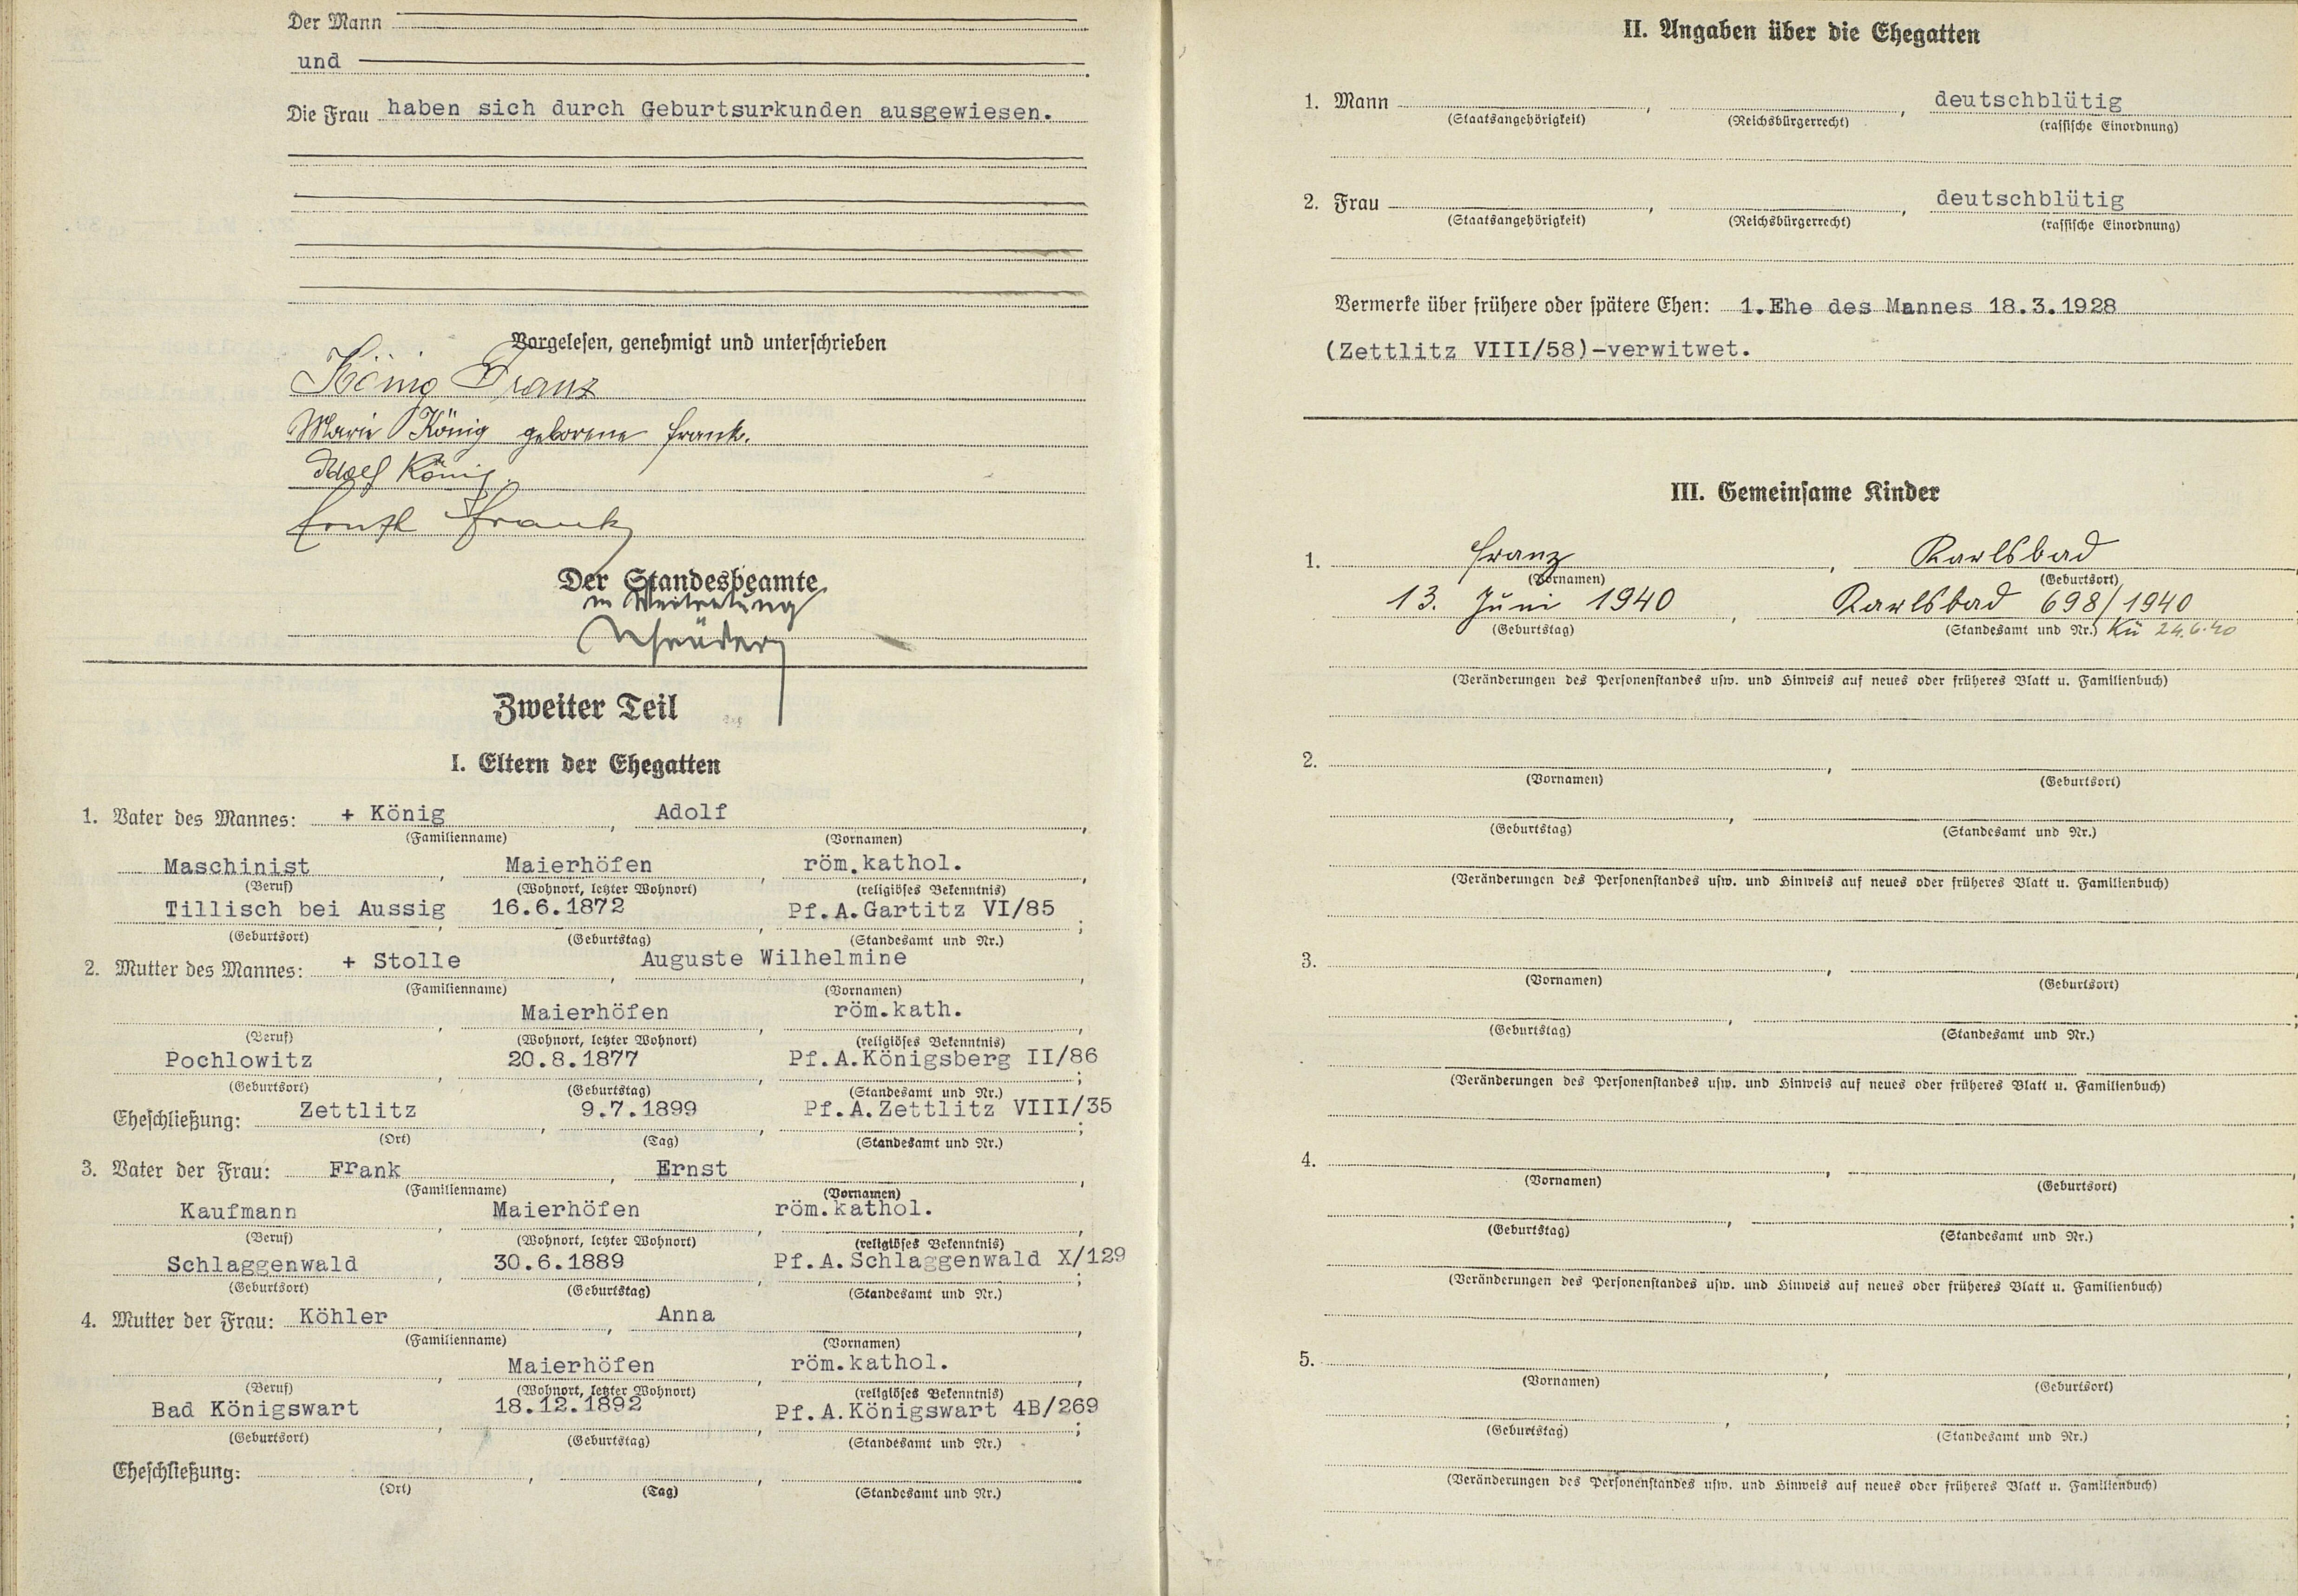 Der Mann
und
Die Frau haben sich durch Geburtsurkunden ausgewiesen.
Vorgelesen, genehmigt und unterschrieben
König Franz
Marie König geborene Frank.
Adolf König
Ernst Frank
Der Standesbeamte
in Vertretung
Zweiter Teil
I. Eltern der Ehegatten
1. Vater des Mannes: + König, Adolf,
(Familienname) (Vornamen)
Maschinist, Maierhöfen, röm.kathol.,
(Beruf) (Wohnort, letzter Wohnort) (religiöses Bekenntnis)
Tillisch bei Aussig, 16.6.1872, Pf.A.Gartitz VI/85;
(Geburtsort) (Geburtstag) (Standesamt und Nr.)
2. Mutter des Mannes: + Stolle, Auguste Wilhelmine,
(Familienname) (Vornamen)
, Maierhöfen, röm.kath.,
(Beruf) (Wohnort, letzter Wohnort) (religiöses Bekenntnis)
Pochlowitz, 20.8.1877, Pf.A.Königsberg II/86;
(Geburtsort) (Geburtstag) (Standesamt und Nr.)
Eheschließung: Zettlitz, 9.7.1899, Pf.A.Zettlitz VIII/35;
(Ort) (Tag) (Standesamt und Nr.)
3. Vater der Frau: Frank, Ernst,
(Familienname) (Vornamen)
Kaufmann, Maierhöfen, röm.kathol.,
(Beruf) (Wohnort, letzter Wohnort) (religiöses Bekenntnis)
Schlaggenwald, 30.6.1889, Pf.A.Schlaggenwald X/129;
(Geburtsort) (Geburtstag) (Standesamt und Nr.)
4. Mutter der Frau: Köhler, Anna,
(Familienname) (Vornamen)
, Maierhöfen, röm.kathol.,
(Beruf) (Wohnort, letzter Wohnort) (religiöses Bekenntnis)
Bad Königswart, 18.12.1892, Pf.A.Königswart 4B/269;
(Geburtsort) (Geburtstag) (Standesamt und Nr.)
Eheschließung: , , .
(Ort) (Tag) (Standesamt und Nr.)
II. Angaben über die Ehegatten
1. Mann , , deutschblütig
(Staatsangehörigkeit) (Reichsbürgerrecht) (rassische Einordnung)
2. Frau , , deutschblütig
(Staatsangehörigkeit) (Reichsbürgerrecht) (rassische Einordnung)
Vermerke über frühere oder spätere Ehen: 1.Ehe des Mannes 18.3.1928
(Zettlitz VIII/58)-verwitwet.
III. Gemeinsame Kinder
1. Franz, Karlsbad
(Vornamen) (Geburtsort)
13. Juni 1940, Karlsbad 698/1940
(Geburtstag) (Standesamt und Nr.) Kü 24.6.40
(Veränderungen des Personenstandes usw. und Hinweis auf neues oder früheres Blatt u. Familienbuch)
2. ,
(Vornamen) (Geburtsort)
,
(Geburtstag) (Standesamt und Nr.)
(Veränderungen des Personenstandes usw. und Hinweis auf neues oder früheres Blatt u. Familienbuch)
3. ,
(Vornamen) (Geburtsort)
, ;
(Geburtstag) (Standesamt und Nr.)
(Veränderungen des Personenstandes usw. und Hinweis auf neues oder früheres Blatt u. Familienbuch)
4. ,
(Vornamen) (Geburtsort)
, ;
(Geburtstag) (Standesamt und Nr.)
(Veränderungen des Personenstandes usw. und Hinweis auf neues oder früheres Blatt u. Familienbuch)
5. ,
(Vornamen) (Geburtsort)
, ;
(Geburtstag) (Standesamt und Nr.)
(Veränderungen des Personenstandes usw. und Hinweis auf neues oder früheres Blatt u. Familienbuch)